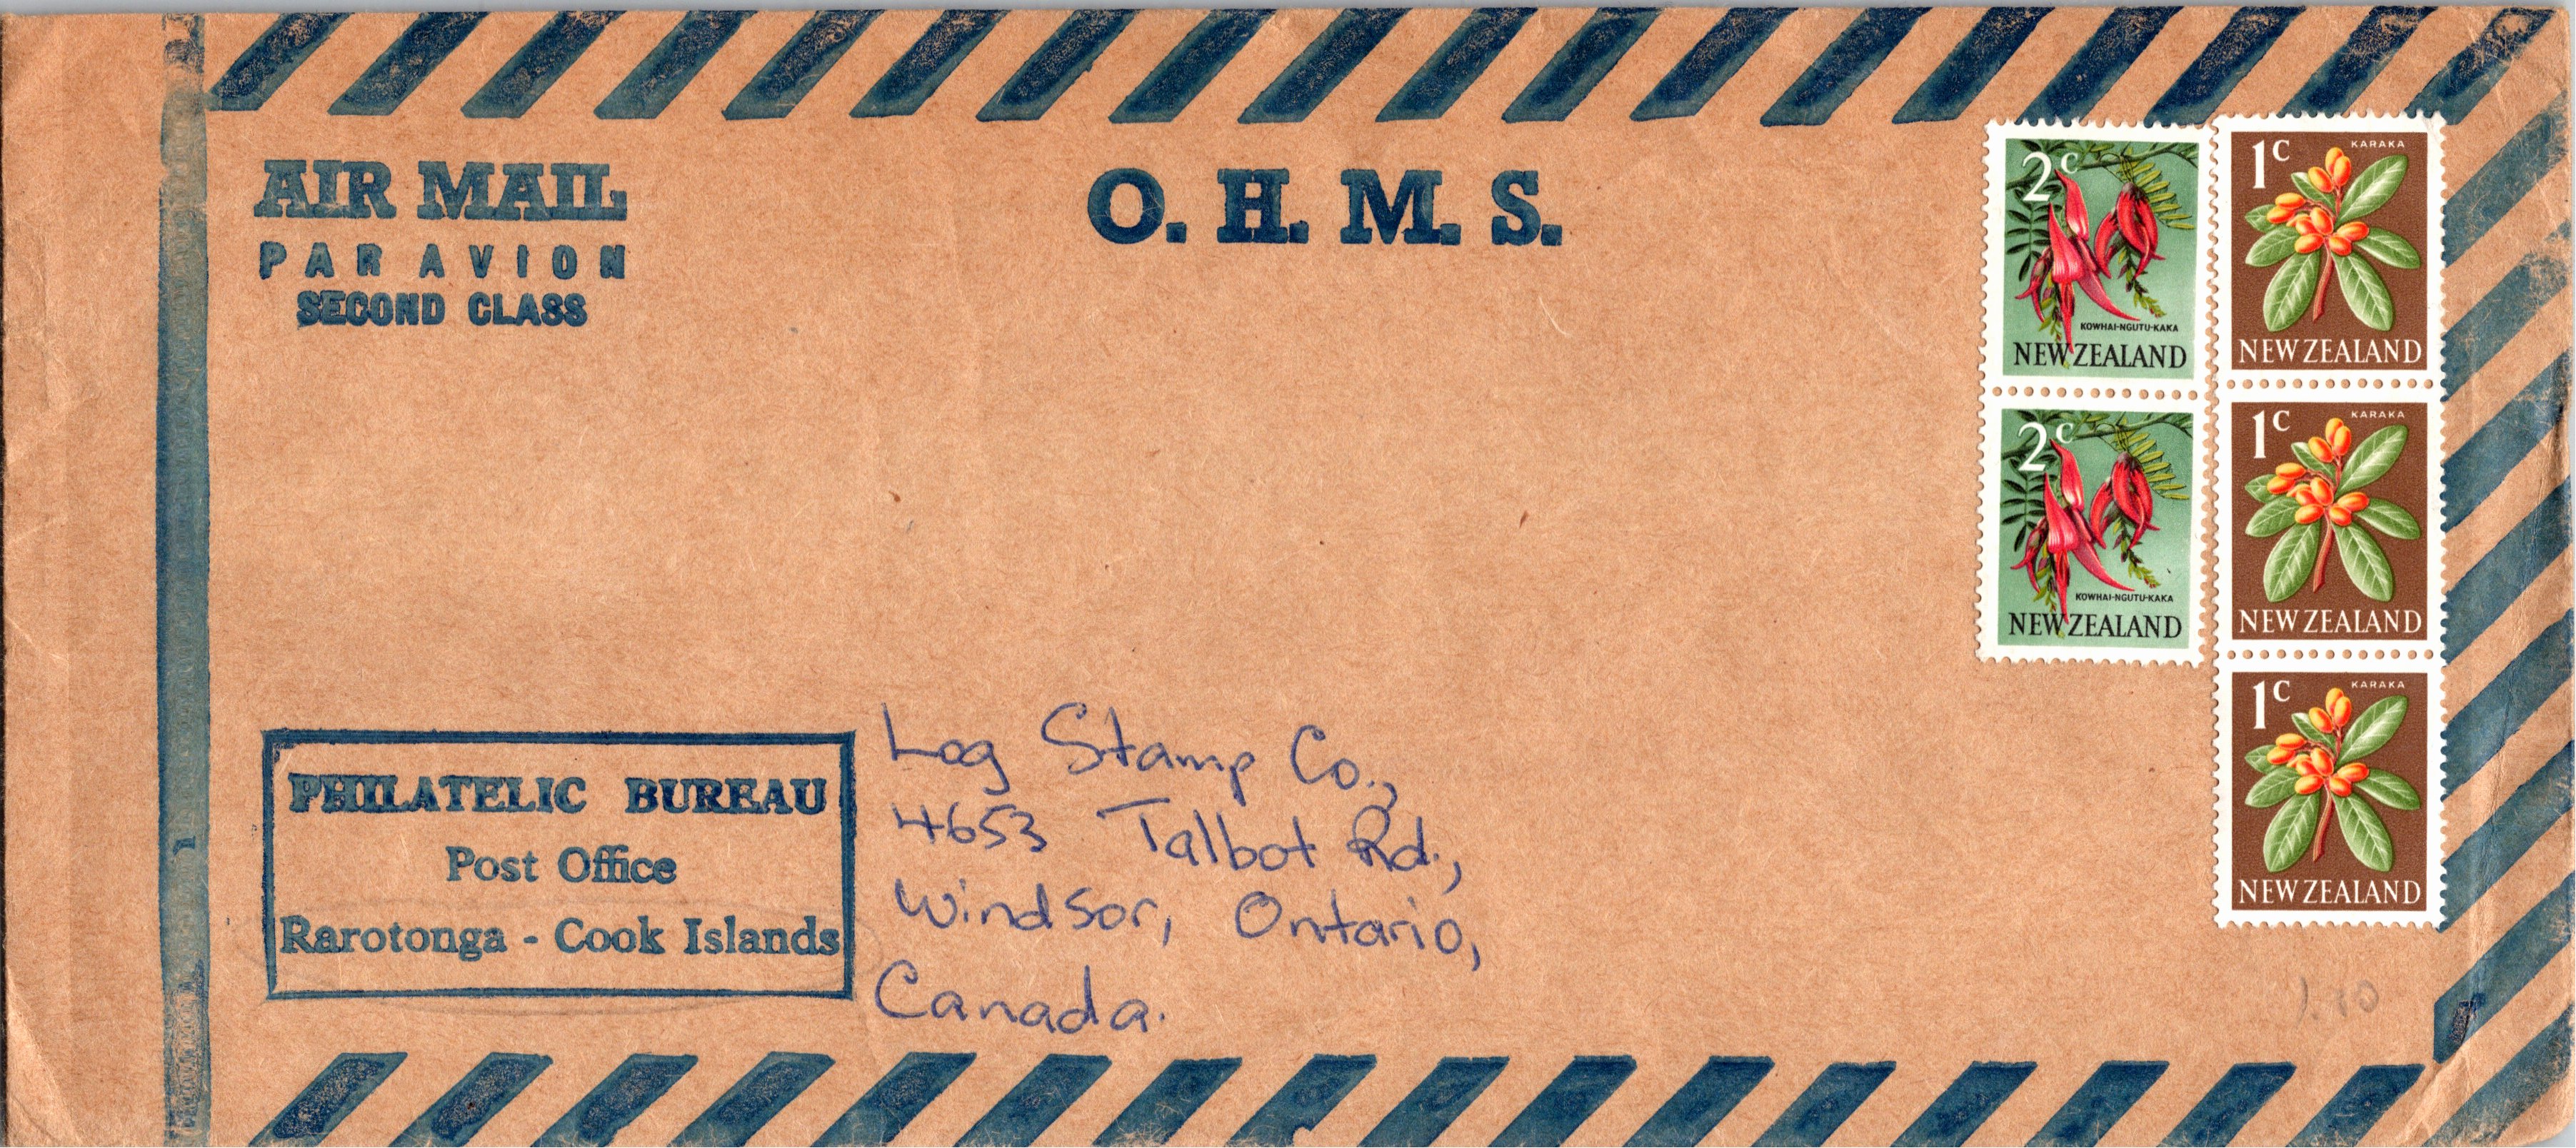 AIR MAIL
PAR AVION
SECOND CLASS
O. H. M. S.
2c
KOWHAI-NGUTU-KAKA
NEW ZEALAND
2c
KOWHAI-NGUTU-KAKA
NEW ZEALAND
1c KARAKA
NEW ZEALAND
1c KARAKA
NEW ZEALAND
1c KARAKA
NEW ZEALAND
PHILATELIC BUREAU
Post Office
Rarotonga - Cook Islands
Log Stamp Co.,
4653 Talbot Rd.,
Windsor, Ontario,
Canada.